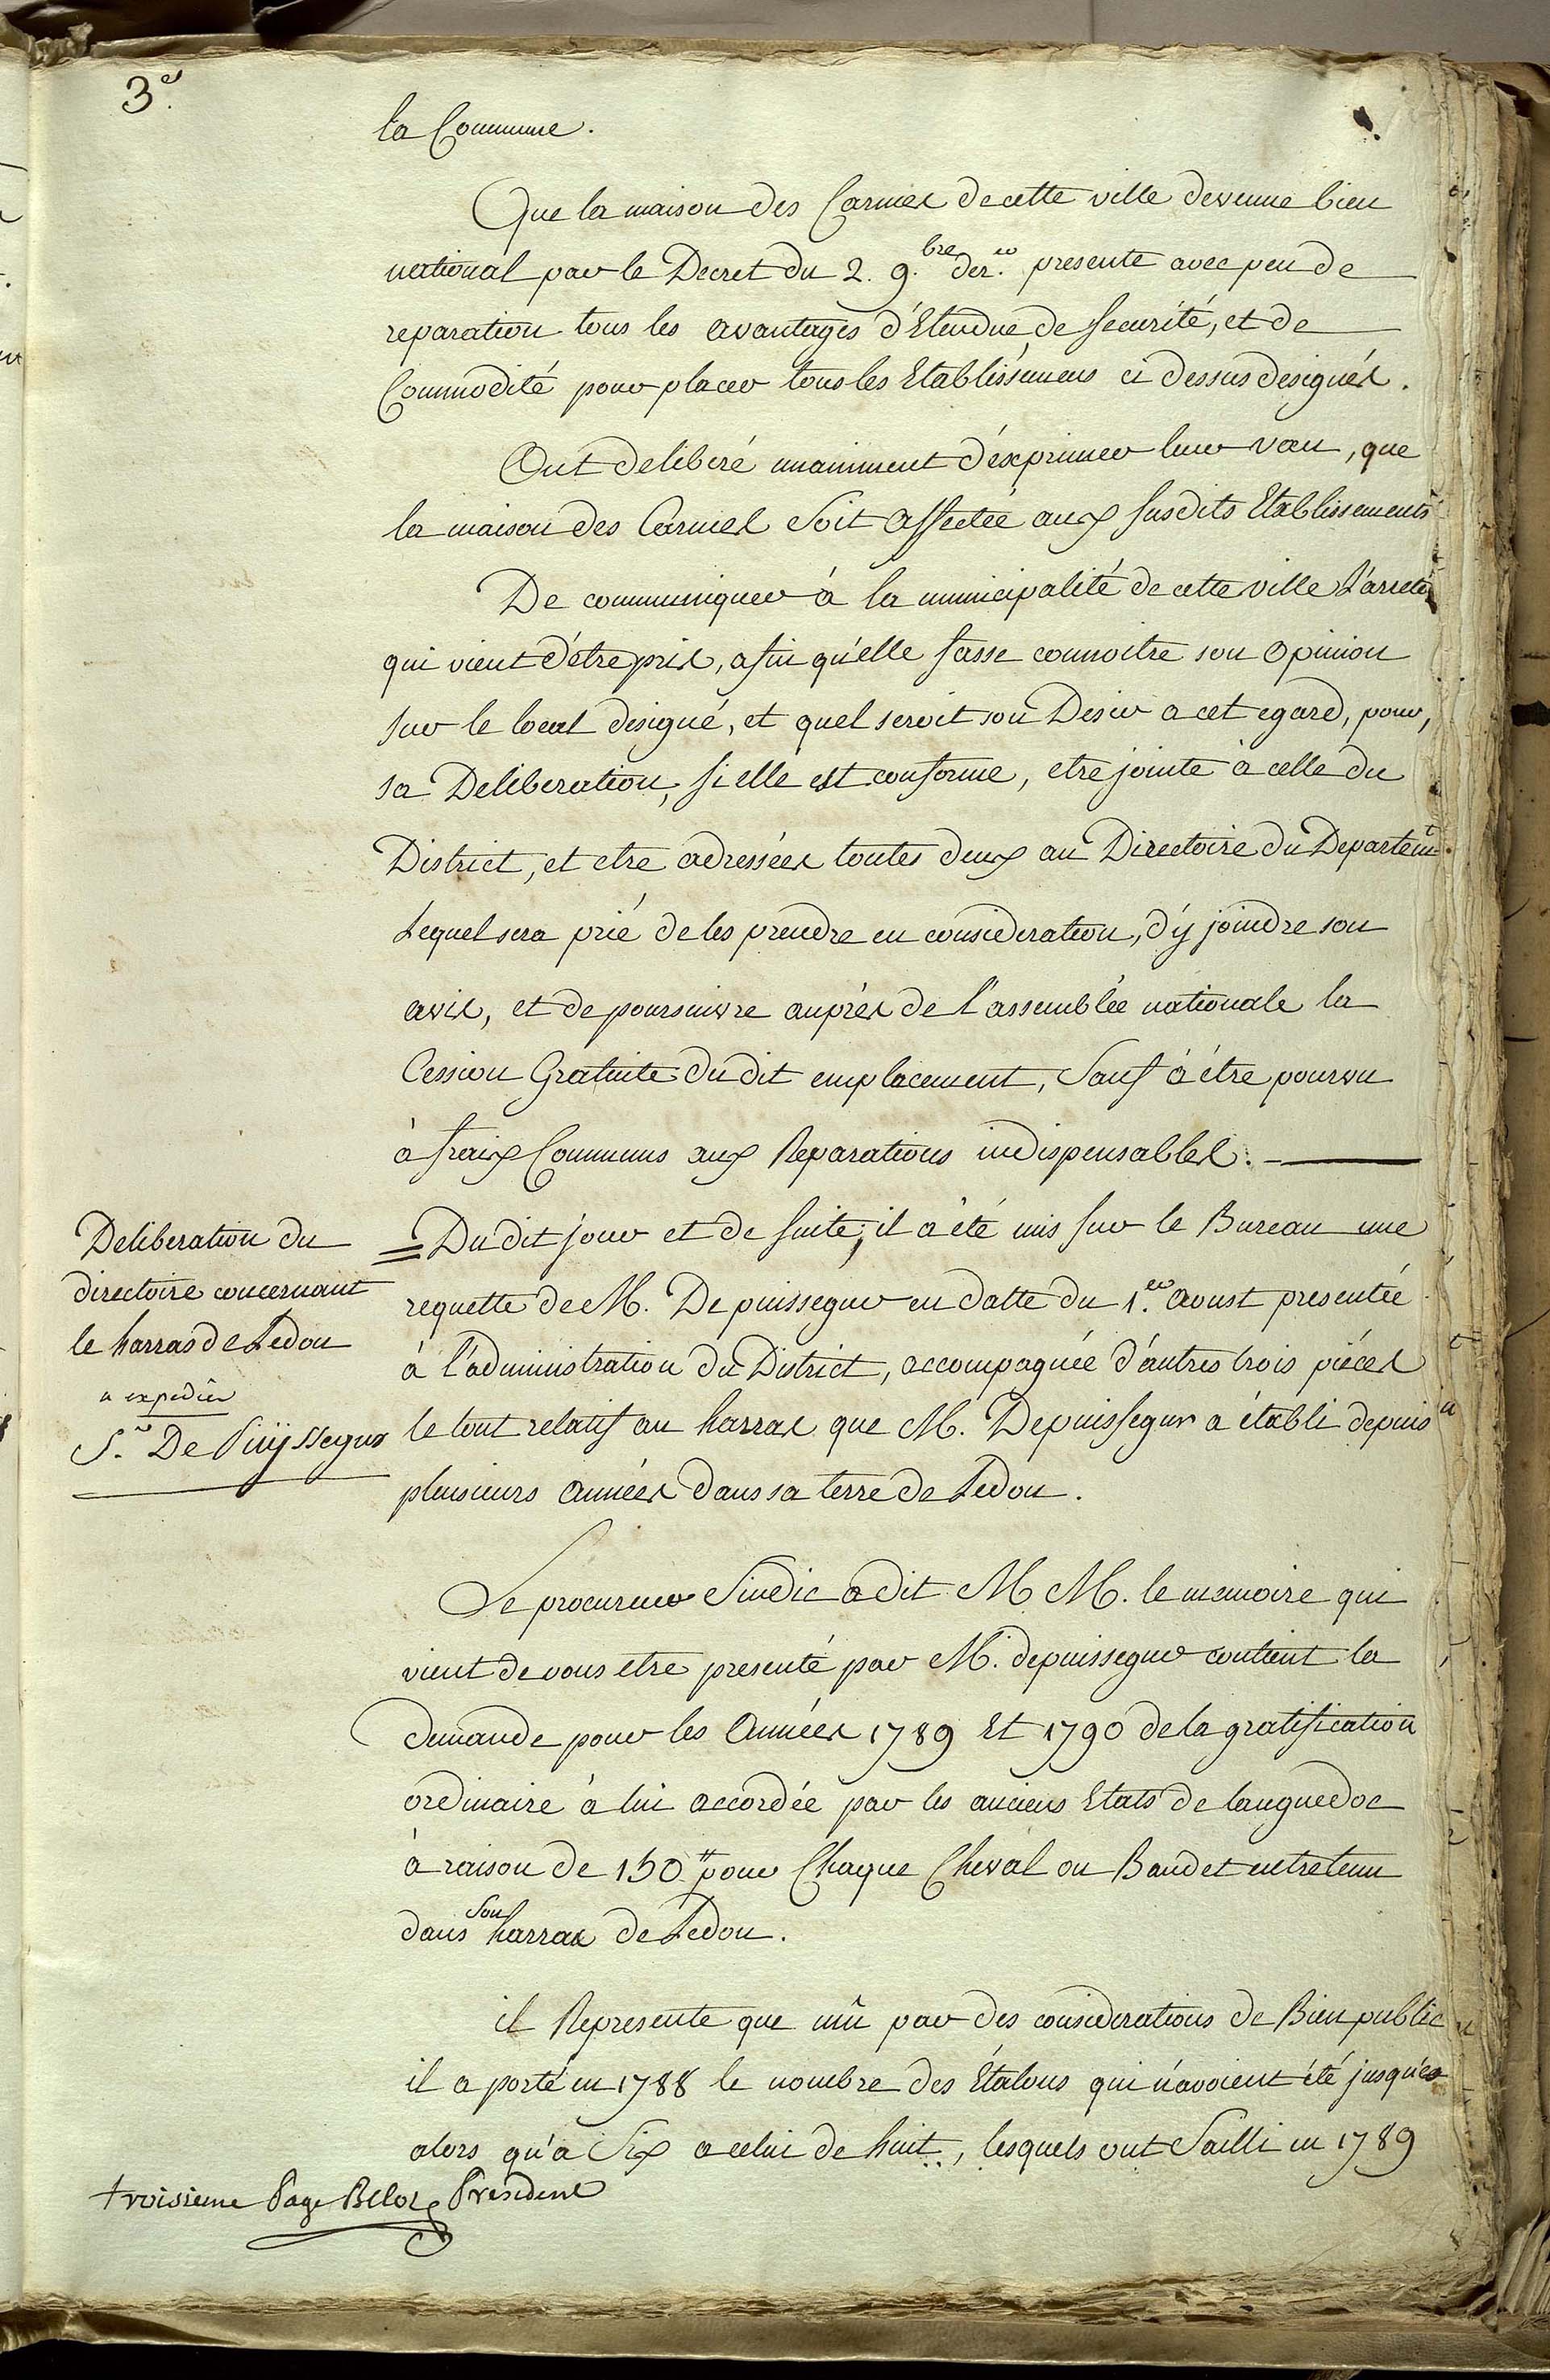 3e.
la Commune.
Que la maison des Carmes de cette ville devenue bien
national par le Decret du 2. 9.bre der.er presente avec peu de
reparation tous les avantages d'Etendue, de securité, et de
Commodité pour placer tous les Etablissemens ci dessus designés.
Ont deliberé unaniment d'exprimer leur vœu, que
la maison des Carmes soit affectée aux susdits Etablissements
De communiquer à la municipalité de cette ville L'arreté
qui vient d'être pris, afin qu'elle fasse connoitre son opinion
sur le local designé, et quel seroit son Desir a cet egard, pour,
sa Deliberation, si elle est conforme, etre jointe à celle du
District, et etre adressées toutes deux au Directoire du Departemt.
Lequel sera prié de les prendre en consideration, d'y joindre son
avis, et de poursuivre auprès de l'assemblée nationale la
Cession Gratuite du dit emplacement, sauf à être pourvu
à fraix Communs aux Reparations indispensables.
Deliberation du
directoire concernant
le harras de Ledou
a expedier
S.r De Puÿssegur
= Du dit jour et de suite; il a été mis sur le Bureau une
requette de M. De puissegur en datte du 1.er aoust presentée
à l'administration du District, accompagnée d'autres trois piéces
le tout relatif au harras que M. Depuissegur a établi depuis
plusieurs années dans sa terre de Ledou.
Le procureur Sindic a dit M M. le memoire qui
vient de vous etre presenté par M. depuissegur contient la
demande pour les Années 1789 Et 1790 de la gratification
ordinaire à lui accordée par les anciens Etats de languedoc
à raison de 150tt pour Chaque Cheval ou Baudet entretenu
dans son harras de Ledou.
il Represente que mû par des considerations de Bien public
il a porté en 1788 le nombre des Étalons qui n'avoient été jusqu'es
alors qu'à Six a celui de huit, lesquels ont Sailli en 1789
troisieme Page Belor President